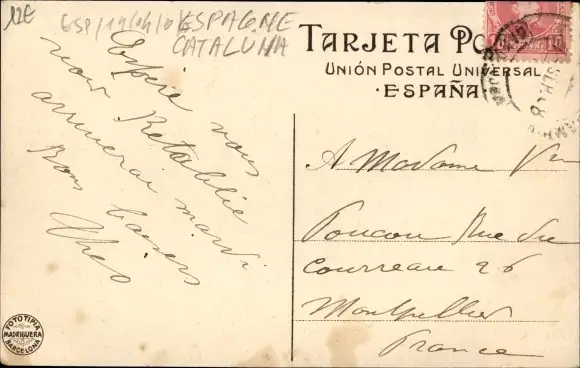 12€
ESPAGNE
CATALUÑA
TARJETA PO
UNIÓN POSTAL UNIVERSAL
· ESPAÑA ·
10
Espère vous
voir Rétablie
arriverai mardi
Bons baisers
A Madame
Rue du
Courreau 26
Montpellier
France
FOTOTIPIA
MADRIGUERA
BARCELONA